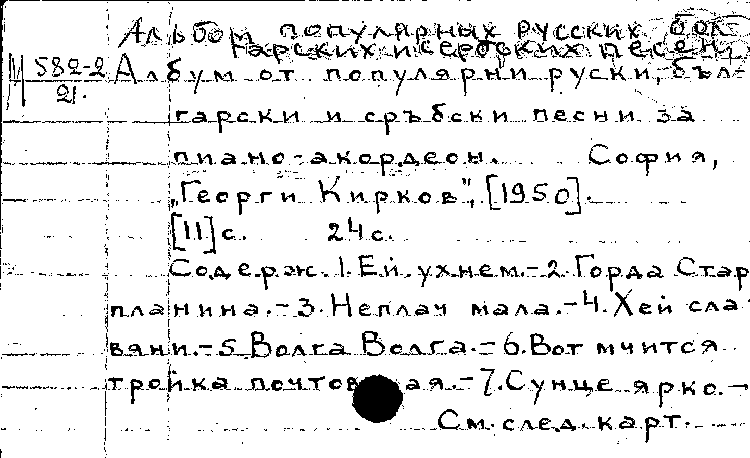 Альбом популярных русских, бол-
гарских и сербских песен,
М 582-2
21.
Албум от популярни руски, бъл-
гарски и сръбски песни за
пиано-акордеон. София,
„Георги Кирков", [1950].
[11] с. 24 с.
Содерж. 1. Ей ухнем.-2. Горда Стар
планина.-3. Неплач мала.-4. Хей сла-
вяни.-5. Волга Волга.-6. Вот мчится
тройка почтовая.-7. Сунце ярко.-
См. след. карт.